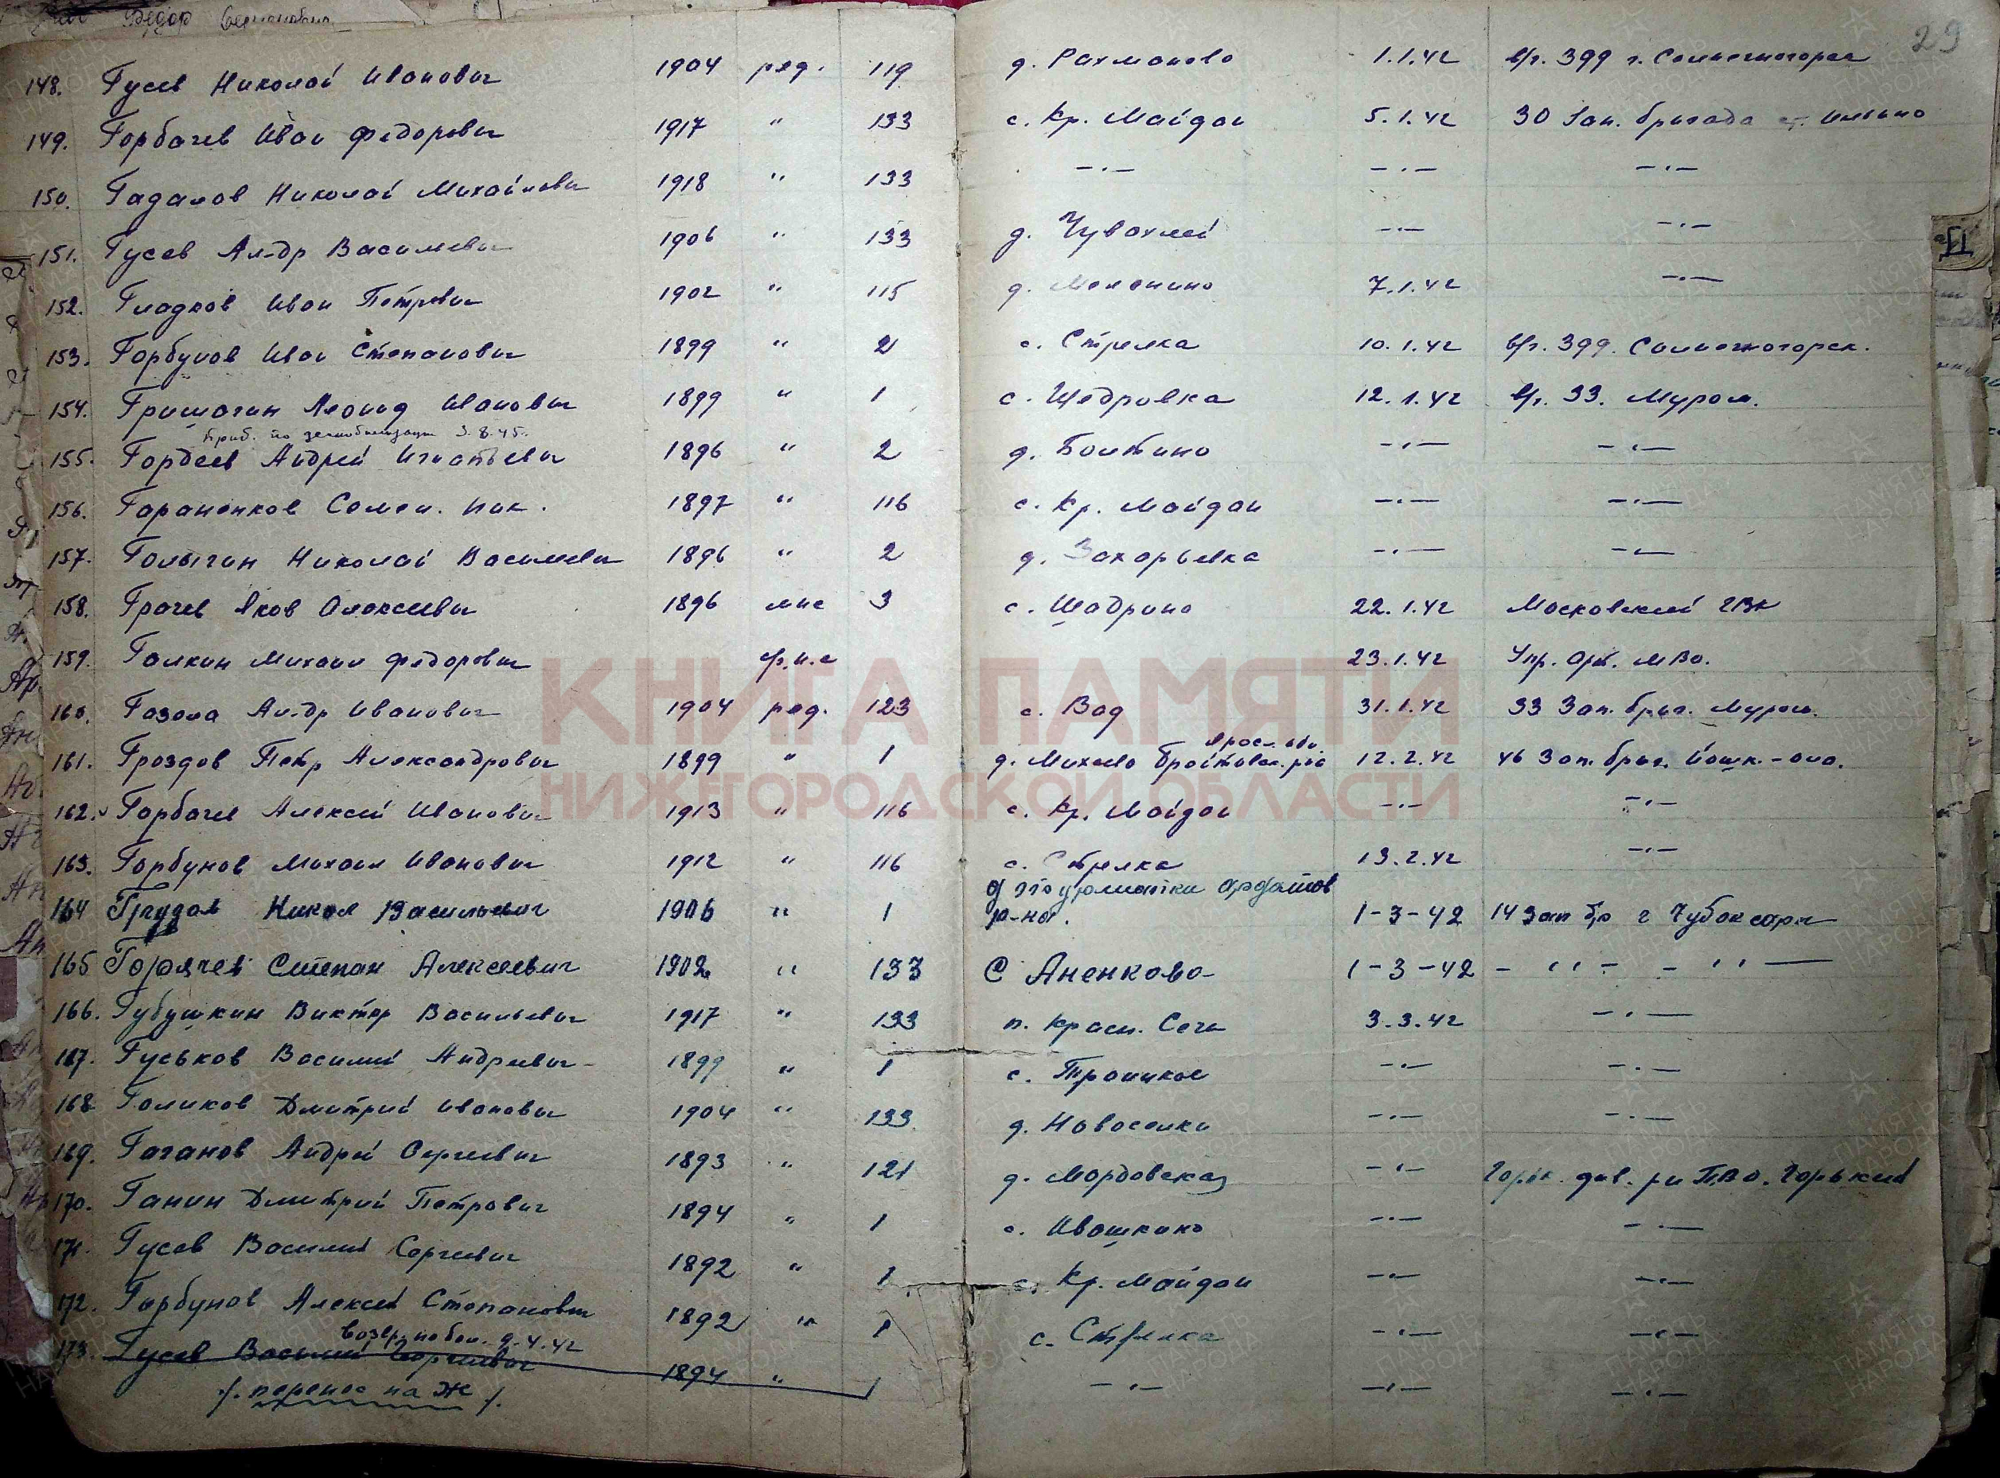 Федор
29
148. Гусев Николай Иванович 1904 ряд. 119 д. Рахманово 1.1.42 в/ч. 399 г. Солнечногорск
149. Горбачев Иван Федорович 1917 " 133 с. Кр. Майдан 5.1.42 30 Зап. бригада ст. Ильино
150. Гадалов Николай Михайлович 1918 " 133 -"- -"- -"-
151. Гусев Ал-др Васильевич 1906 " 133 д. Чувахлей -"- -"-
152. Гладков Иван Петрович 1902 " 115 д. 7.1.42 -"-
153. Горбунов Иван Степанович 1899 " 2 с. Стрелка 10.1.42 в/ч. 399. Солнечногорск.
154. Гришагин Леонид Иванович 1899 " 1 с. Щедровка 12.1.42 в/ч. 33. Муром.
Приб. по демобилизации 3.8.45.
155. Гордеев Андрей Игнатьевич 1896 " 2 д. Болтино -"- -"-
156. Гораненков Семен. Ник. 1897 " 116 с. Кр. Майдан -"- -"-
157. Голыгин Николай Васильевич 1896 " 2 д. Захарьевка -"- -"-
158. Грачев Яков Алексеевич 1896 мнс 3 с. Шадрино 22.1.42 Московский ГВК
159. Галкин Михаил Федорович 23.1.42 Упр. Арт. МВО.
160. Газола Ал-др Иванович 1904 ряд. 123 с. Вад 31.1.42 33 Зап. бриг. Муром.
161. Гроздов Петр Александрович 1899 " 1 д. 12.2.42 46 Зап. бриг. Йошк.-Ола.
162. Горбачев Алексей Иванович 1913 " 116 с. Кр. Майдан -"- -"-
163. Горбунов Михаил Иванович 1912 " 116 с. Стрелка 13.2.42 -"-
164 Никол Васильевич 1906 " 1 Ардатов р-на. 1-3-42 14 Зап бр г Чубоксары
165 Горячев Степан Алексеевич 1902 " 133 с Аненково 1-3-42 - " - - " -
166. Губушкин Виктор Васильевич 1917 " 133 п. Красн. Сечь 3.3.42 -"-
167. Гуськов Василий Андреевич 1899 " 1 с. Троицкое -"- -"-
168 Голиков Дмитрий Иванович 1904 " 133 д. Новоселки -"- -"-
169. Гаганов Андрей Сергеевич 1893 " 121 д. Мордовская -"- Горьк. див. р-н ПВО. Горький
170. Ганин Дмитрий Петрович 1894 " 1 с. Ивашкино -"- -"-
171. Гусев Василий Сергеевич 1892 " 1 с. Кр. Майдан -"- -"-
172. Горбунов Алексей Степанович 1892 " 1 с. Стрелка -"- -"-
возвр. по бол. 9.4.42
173. Гусев Василий Сергеевич 1894 " 1 -"- -"- -"-
/. перенес на Ж /.
КНИГА ПАМЯТИ
НИЖЕГОРОДСКОЙ ОБЛАСТИ
ПАМЯТЬ НАРОДА